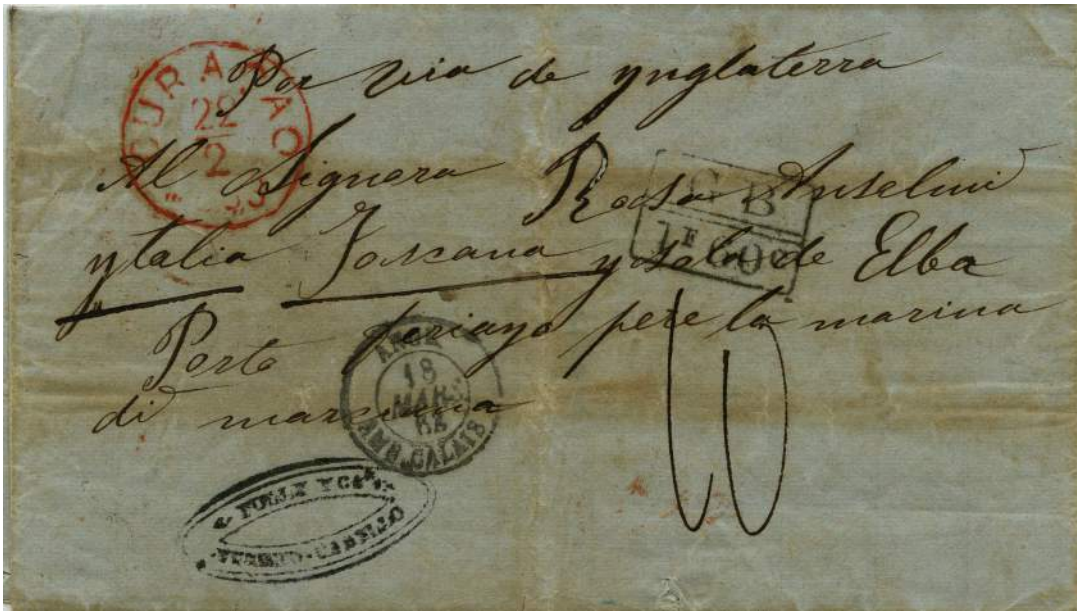 Por via de ynglaterra
CURAÇAO
22
2
Al Signora Rosa Anselmi
G B
1F 60C
ytalia Toscana ysola de Elba
Porto feriayo pere la marina
di marciana
ANGL.
18
MARS
AMB. CALAIS
Y CA
PUERTO-CABELLO